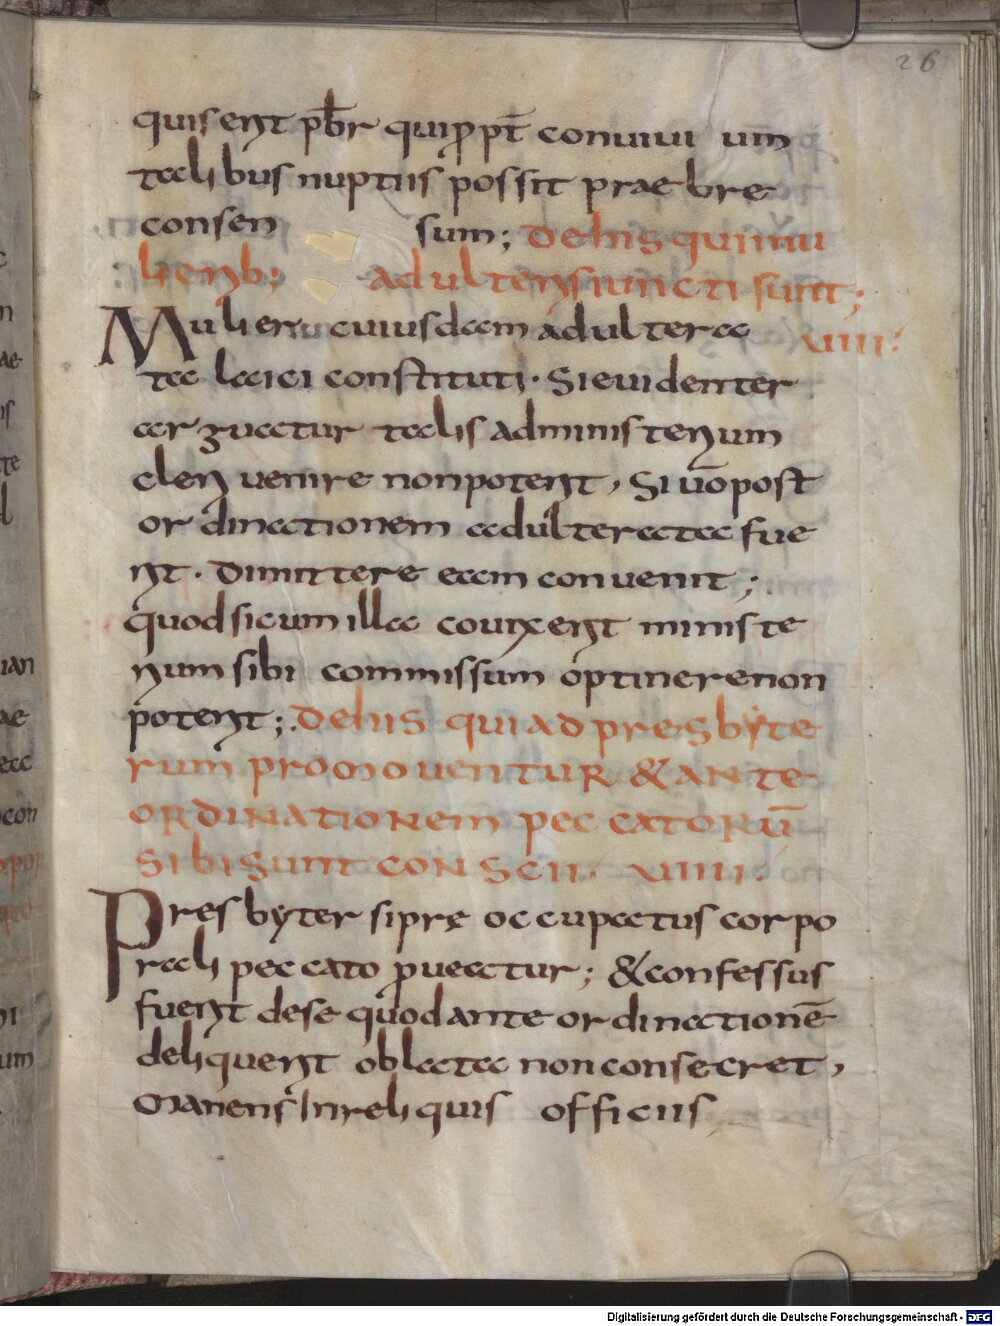 26
quis erit pbr qui ppt conuiui um
talibus nuptiis possit praebre
consen sum; De his qui mu
lierib; adulteris iuncti sunt;
Mulier cuiusdam adulterae uiii.
ta laici constituti. Si euidenter
arguatur talis administerium
cleri uenire non poterit, Si uō post
ordinationem adulterata fue
rit. Dimittere eam conuenit;
quod si cum illa couixerit ministe
rium sibi commissum optinere non
poterit; De his qui ad presbyte
rum promouentur & ante
ordinationem peccatorū
sibi sunt conscii. uiiii.
Presbyter si pre occupatus corpo
rali peccato pueatur; & confessus
fuerit de se quod ante ordinationē
deliquerit oblata non consecret,
Manens in reliquis officiis
Digitalisierung gefördert durch die Deutsche Forschungsgemeinschaft - DFG